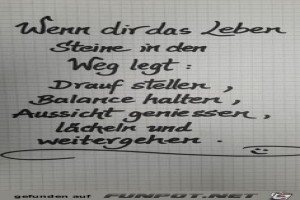 Wenn dir das Leben
Steine in den
Weg legt :
Drauf stellen ,
Balance halten ,
Aussicht geniessen ,
lächeln und
weitergehen .
gefunden auf FUNPOT.NET